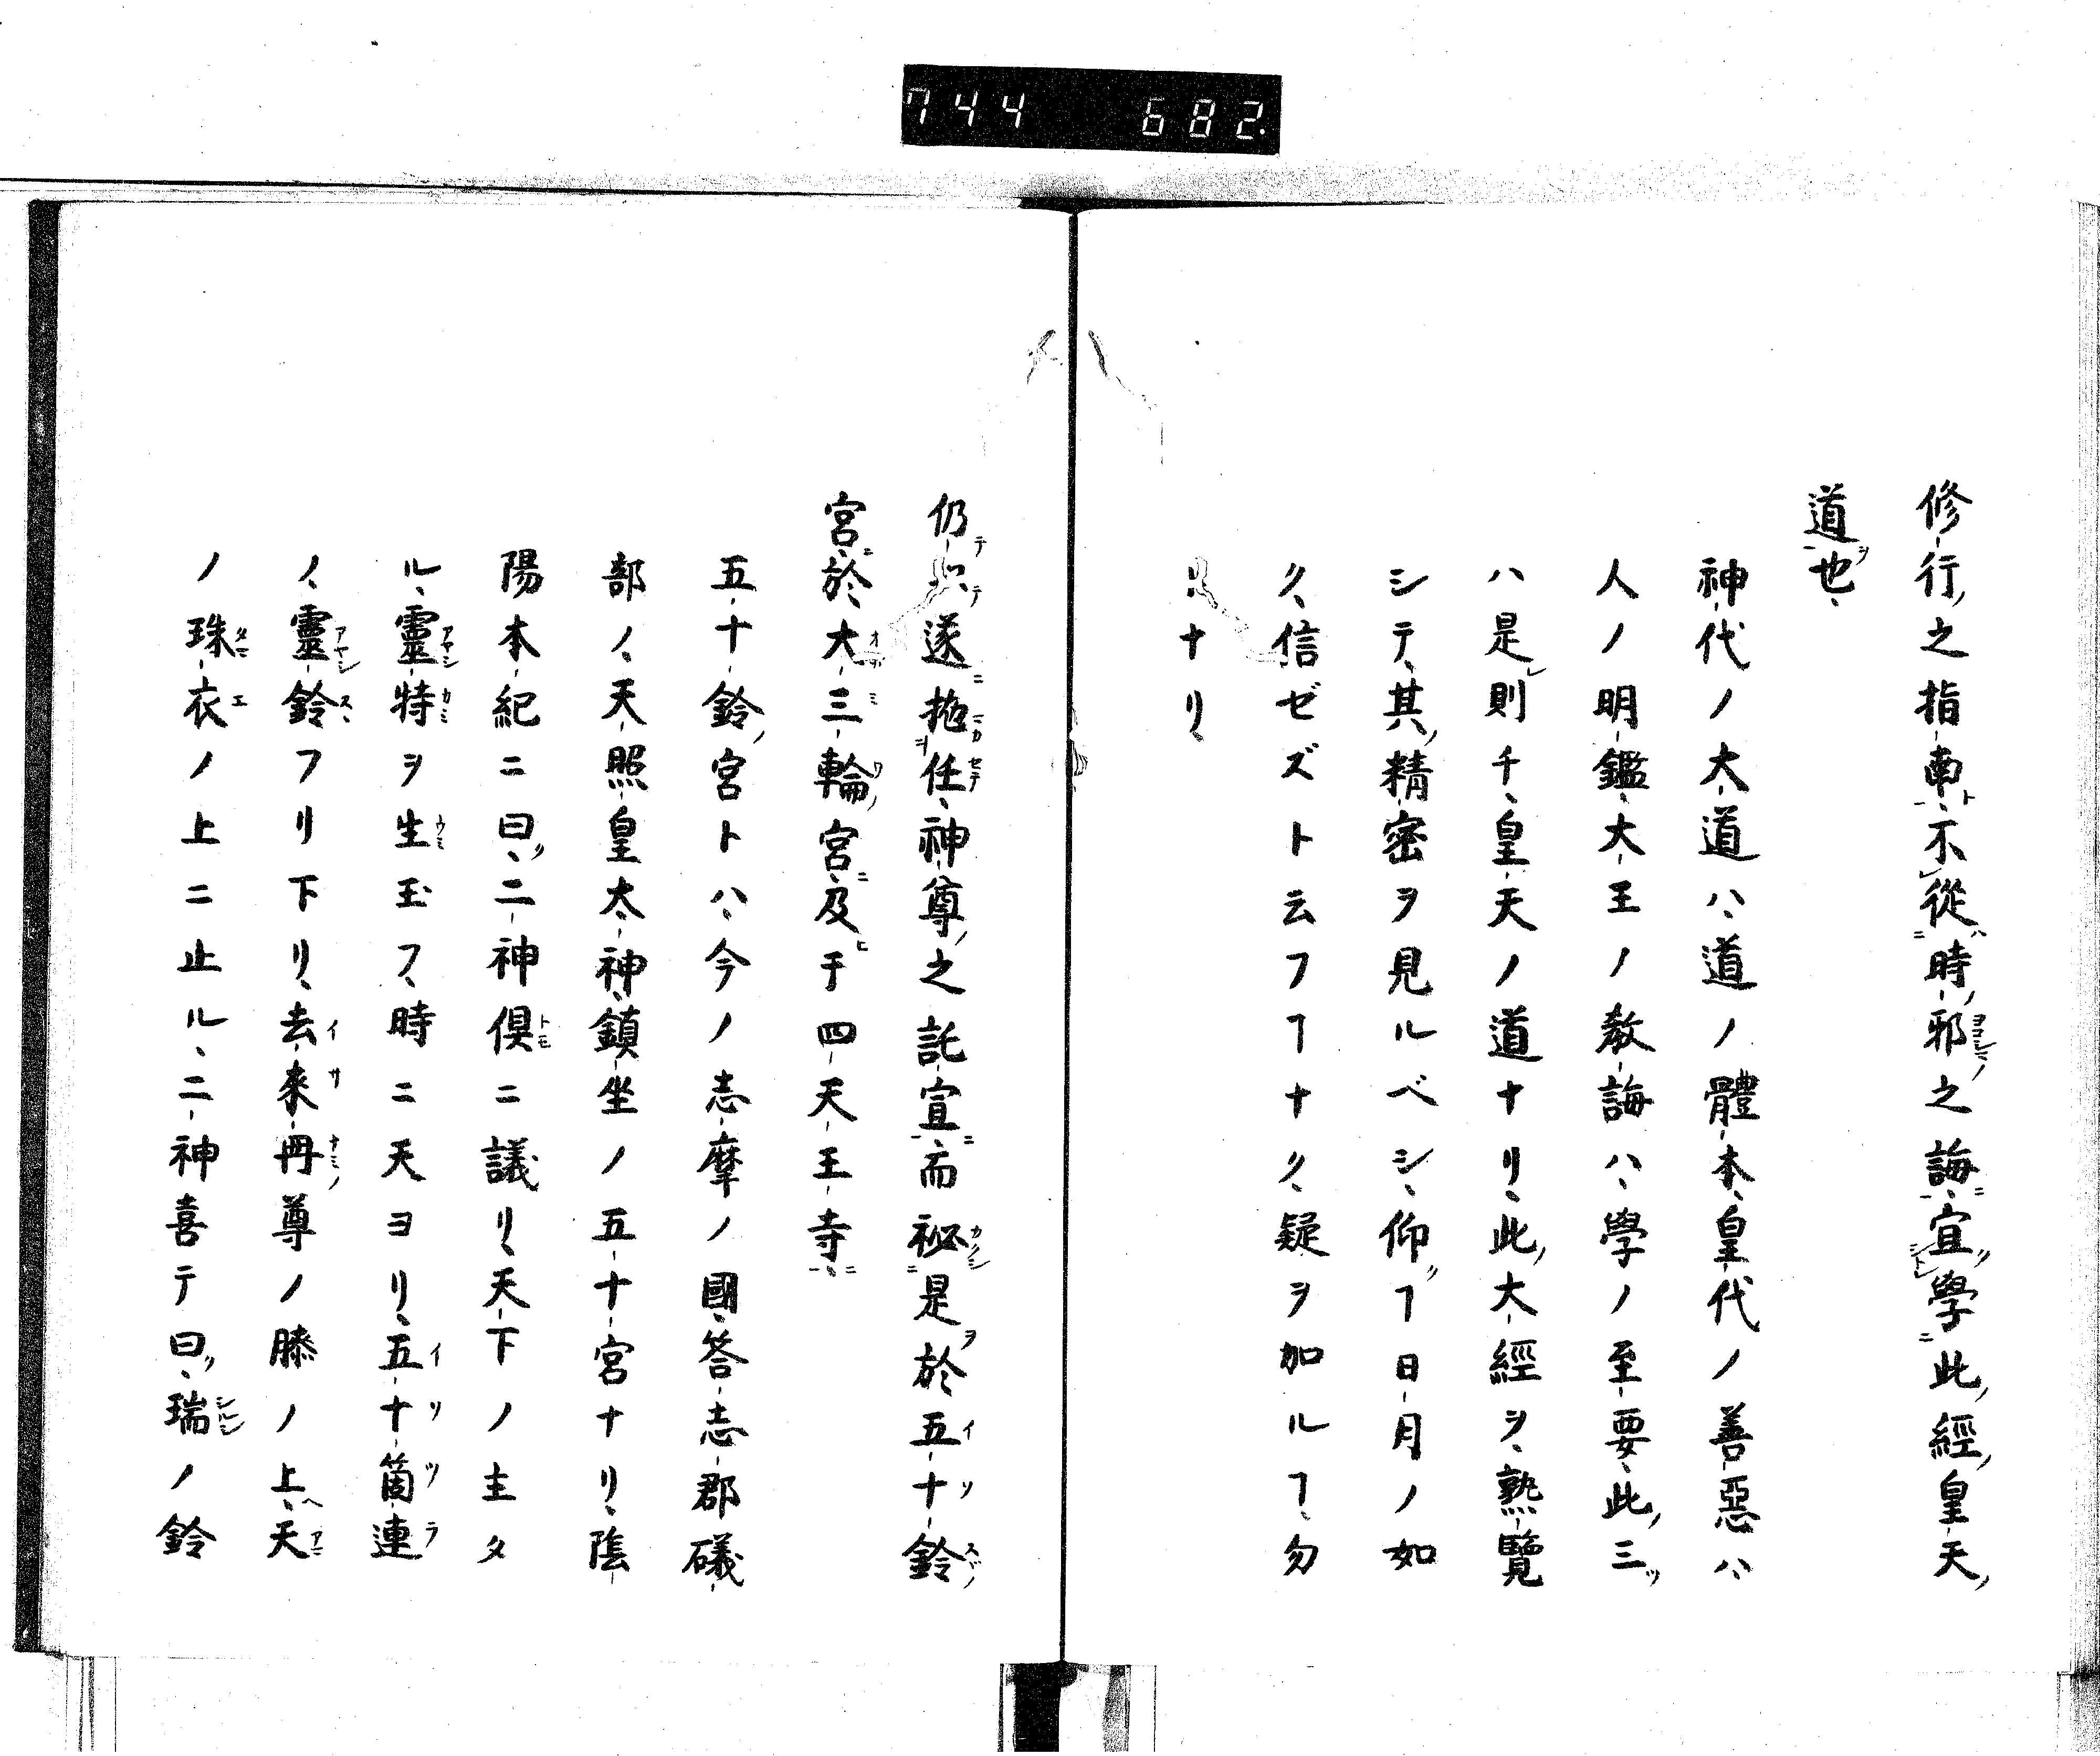 744 682.
修行之指南不從時邪之誨宜學此經皇天
道也
神代ノ大道ハ道ノ體本皇代ノ善惡ハ
人ノ明鑑大王ノ教誨ハ學ノ至要此三ツ
ハ是レ則チ皇天ノ道ナリ此大經ヲ熟覽
シテ其精密ヲ見ルベシ仰ヿ日月ノ如
ク信ゼズト云フヿナク疑ヲ加ルヿ勿
ナリ
仍テ遂抱任神尊之託宣而祕是於五十鈴
宮於大三輪宮及于四天王寺
五十鈴宮トハ今ノ志摩ノ國答志郡礒
部ノ天照皇太神鎮坐ノ五十宮ナリ陰
陽本紀ニ曰二神倶ニ議リ天下ノ主タ
ル靈特ヲ生玉フ時ニ天ヨリ五十箇連
ノ靈鈴フリ下リ去來冊尊ノ膝ノ上天
ノ珠衣ノ上ニ止ル二神喜テ曰瑞ノ鈴